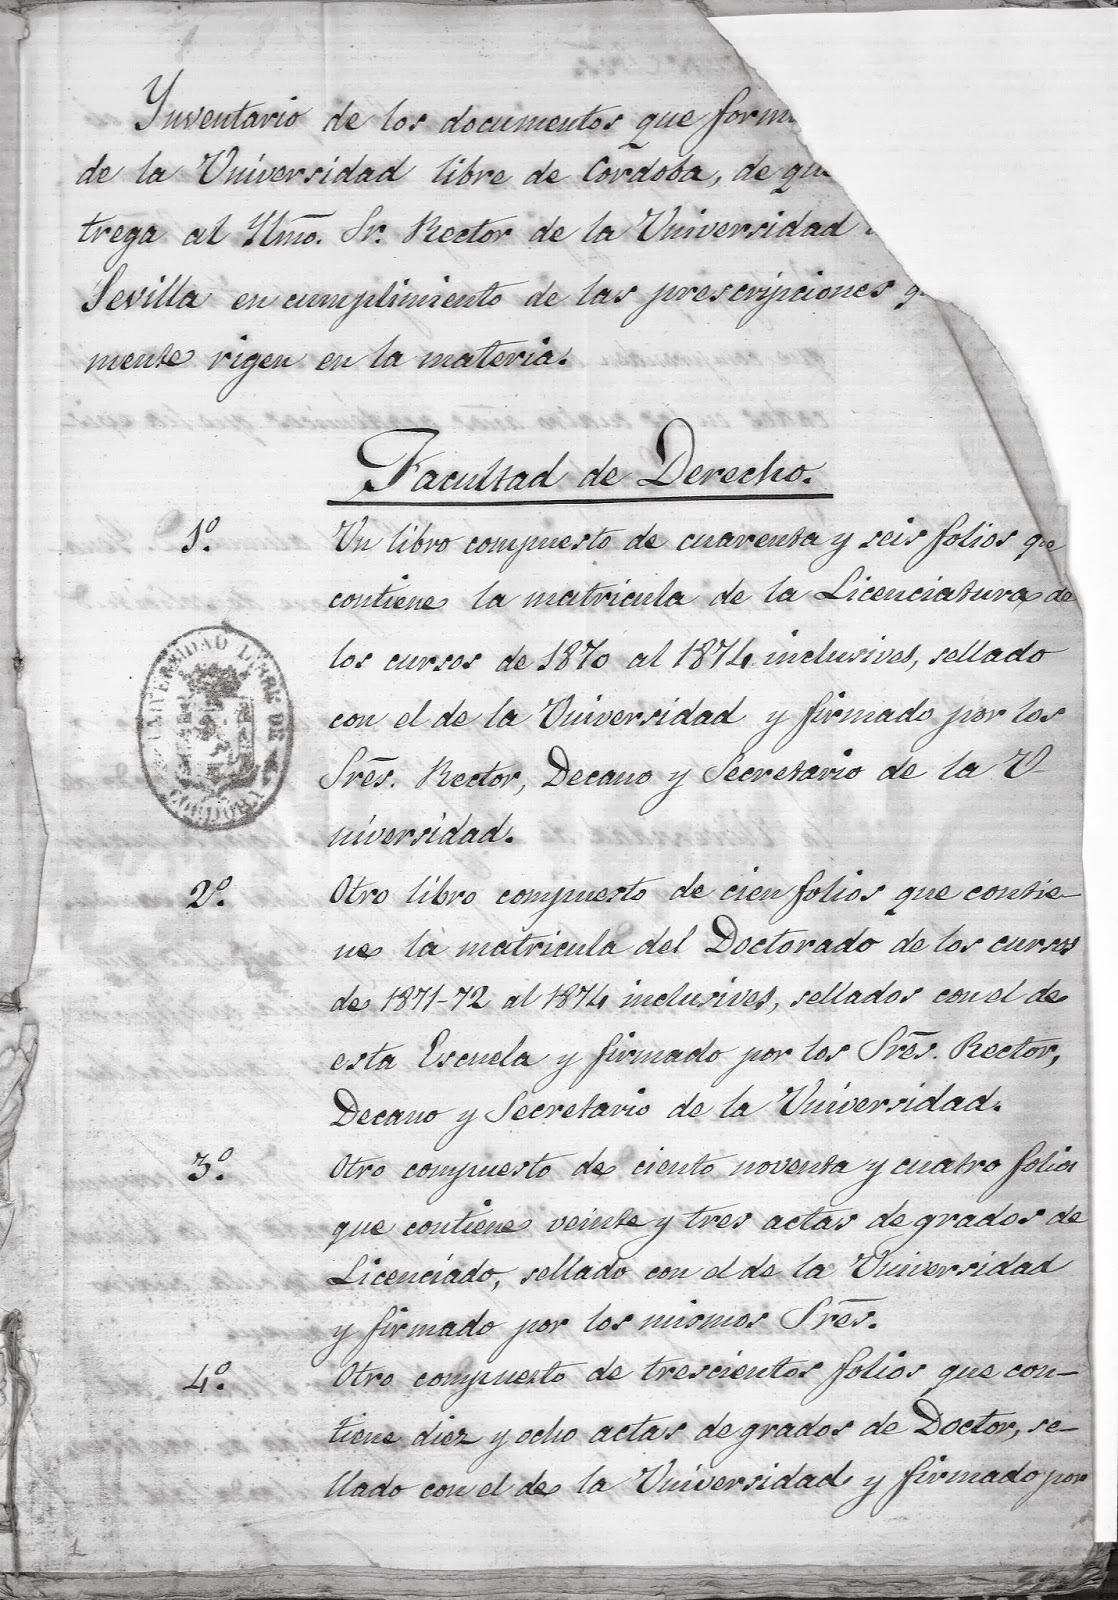 Ynventario de los documentos que form
de la Universidad libre de Córdoba, de qu
trega al Yltmo. Sr. Rector de la Universidad
Sevilla en cumplimiento de las prescripciones q
mente rigen en la materia.
Facultad de Derecho.
1º. Un libro compuesto de cuarenta y seis folios que
contiene la matricula de la Licenciatura de
los cursos de 1870 al 1874 inclusives, sellado
con el de la Universidad y firmado por los
Srẽs. Rector, Decano y Secretario de la U
niversidad.
UNIVERSIDAD LIBRE DE CORDOBA
2º. Otro libro compuesto de cien folios que contie-
ne la matricula del Doctorado de los cursos
de 1871-72 al 1874 inclusives, sellados con el de
esta Escuela y firmado por los Srẽs. Rector,
Decano y Secretario de la Universidad.
3º. Otro compuesto de ciento noventa y cuatro folios
que contiene veinte y tres actas de grados de
Licenciado, sellado con el de la Universidad
y firmado por los mismos Srẽs.
4º. Otro compuesto de trescientos folios que con-
tiene diez y ocho actas de grados de Doctor, se-
llado con el de la Universidad y firmado por
1